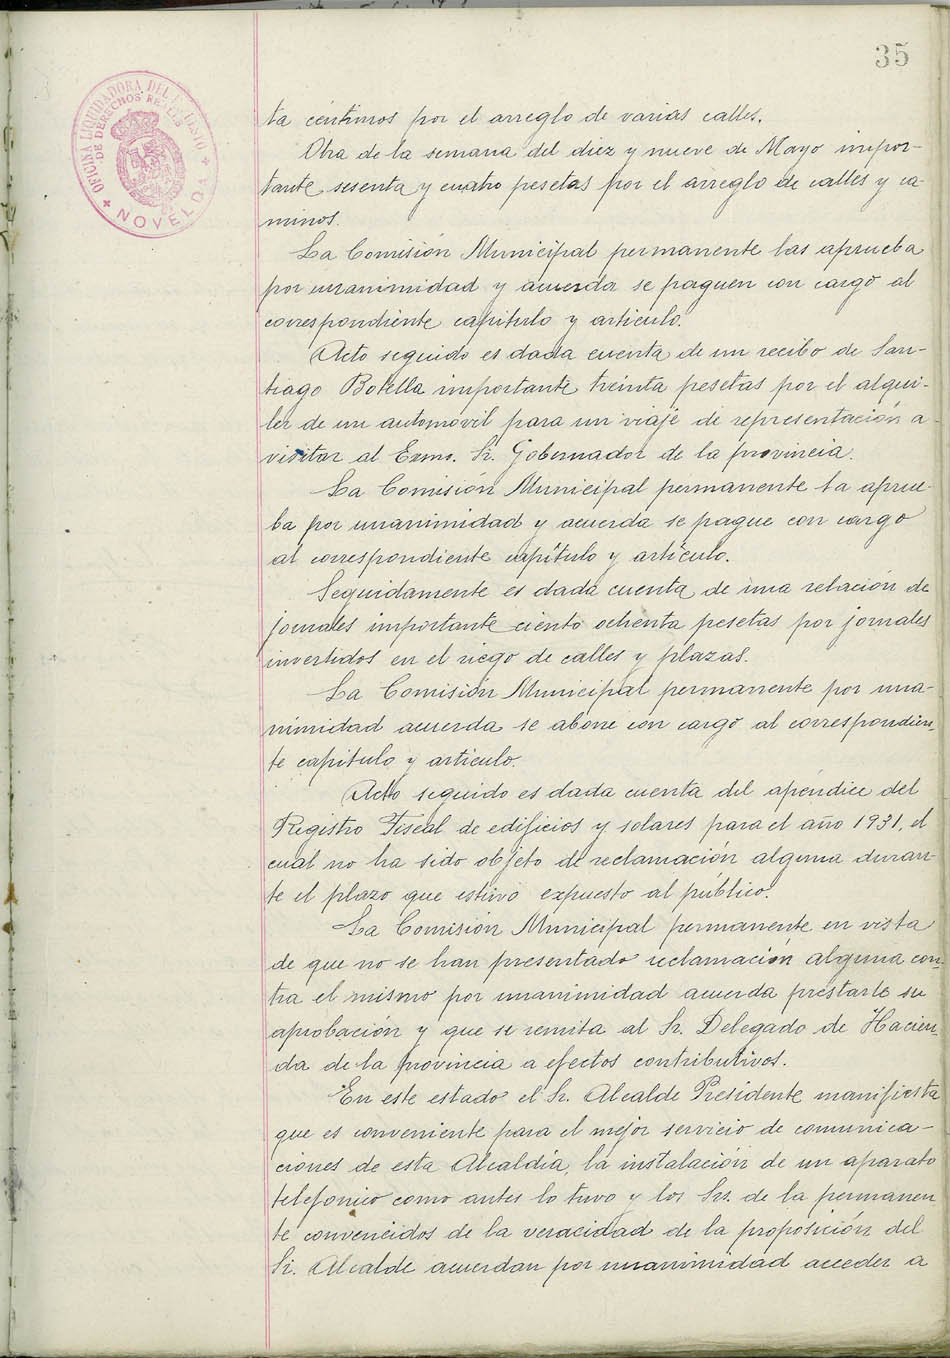 35
OFICINA LIQUIDADORA DEL
DE DERECHOS REALES
NOVELDA
ta céntimos por el arreglo de varias calles.
Otra de la semana del diez y nueve de Mayo impor-
tante sesenta y cuatro pesetas por el arreglo de calles y ca-
minos.
La Comisión Municipal permanente las aprueba
por unanimidad y acuerda se paguen con cargo al
correspondiente capitulo y articulo.
Acto seguido es dada cuenta de un recibo de San-
tiago Botella importante treinta pesetas por el alqui-
ler de un automovil para un viaje de representación a
visitar al Exmo. Sr. Gobernador de la provincia.
La Comisión Municipal permanente la aprue-
ba por unanimidad y acuerda se pague con cargo
al correspondiente capítulo y artículo.
Seguidamente es dada cuenta de una relación de
jornales importante ciento ochenta pesetas por jornales
invertidos en el riego de calles y plazas.
La Comisión Municipal permanente por una-
nimidad acuerda se abone con cargo al correspondien-
te capitulo y articulo.
Acto seguido es dada cuenta del apéndice del
Registro Fiscal de edificios y solares para el año 1931, el
cual no ha sido objeto de reclamación alguna duran-
te el plazo que estuvo expuesto al público.
La Comisión Municipal permanente en vista
de que no se han presentado reclamación alguna con-
tra el mismo por unanimidad acuerda prestarle su
aprobación y que se remita al Sr. Delegado de Hacien-
da de la provincia a efectos contributivos.
En este estado el Sr. Alcalde Presidente manifiesta
que es conveniente para el mejor servicio de comunica-
ciones de esta Alcaldía, la instalación de un aparato
telefonico como antes lo tuvo y los Srs. de la permanen-
te convencidos de la veracidad de la proposición del
Sr. Alcalde acuerdan por unanimidad acceder a